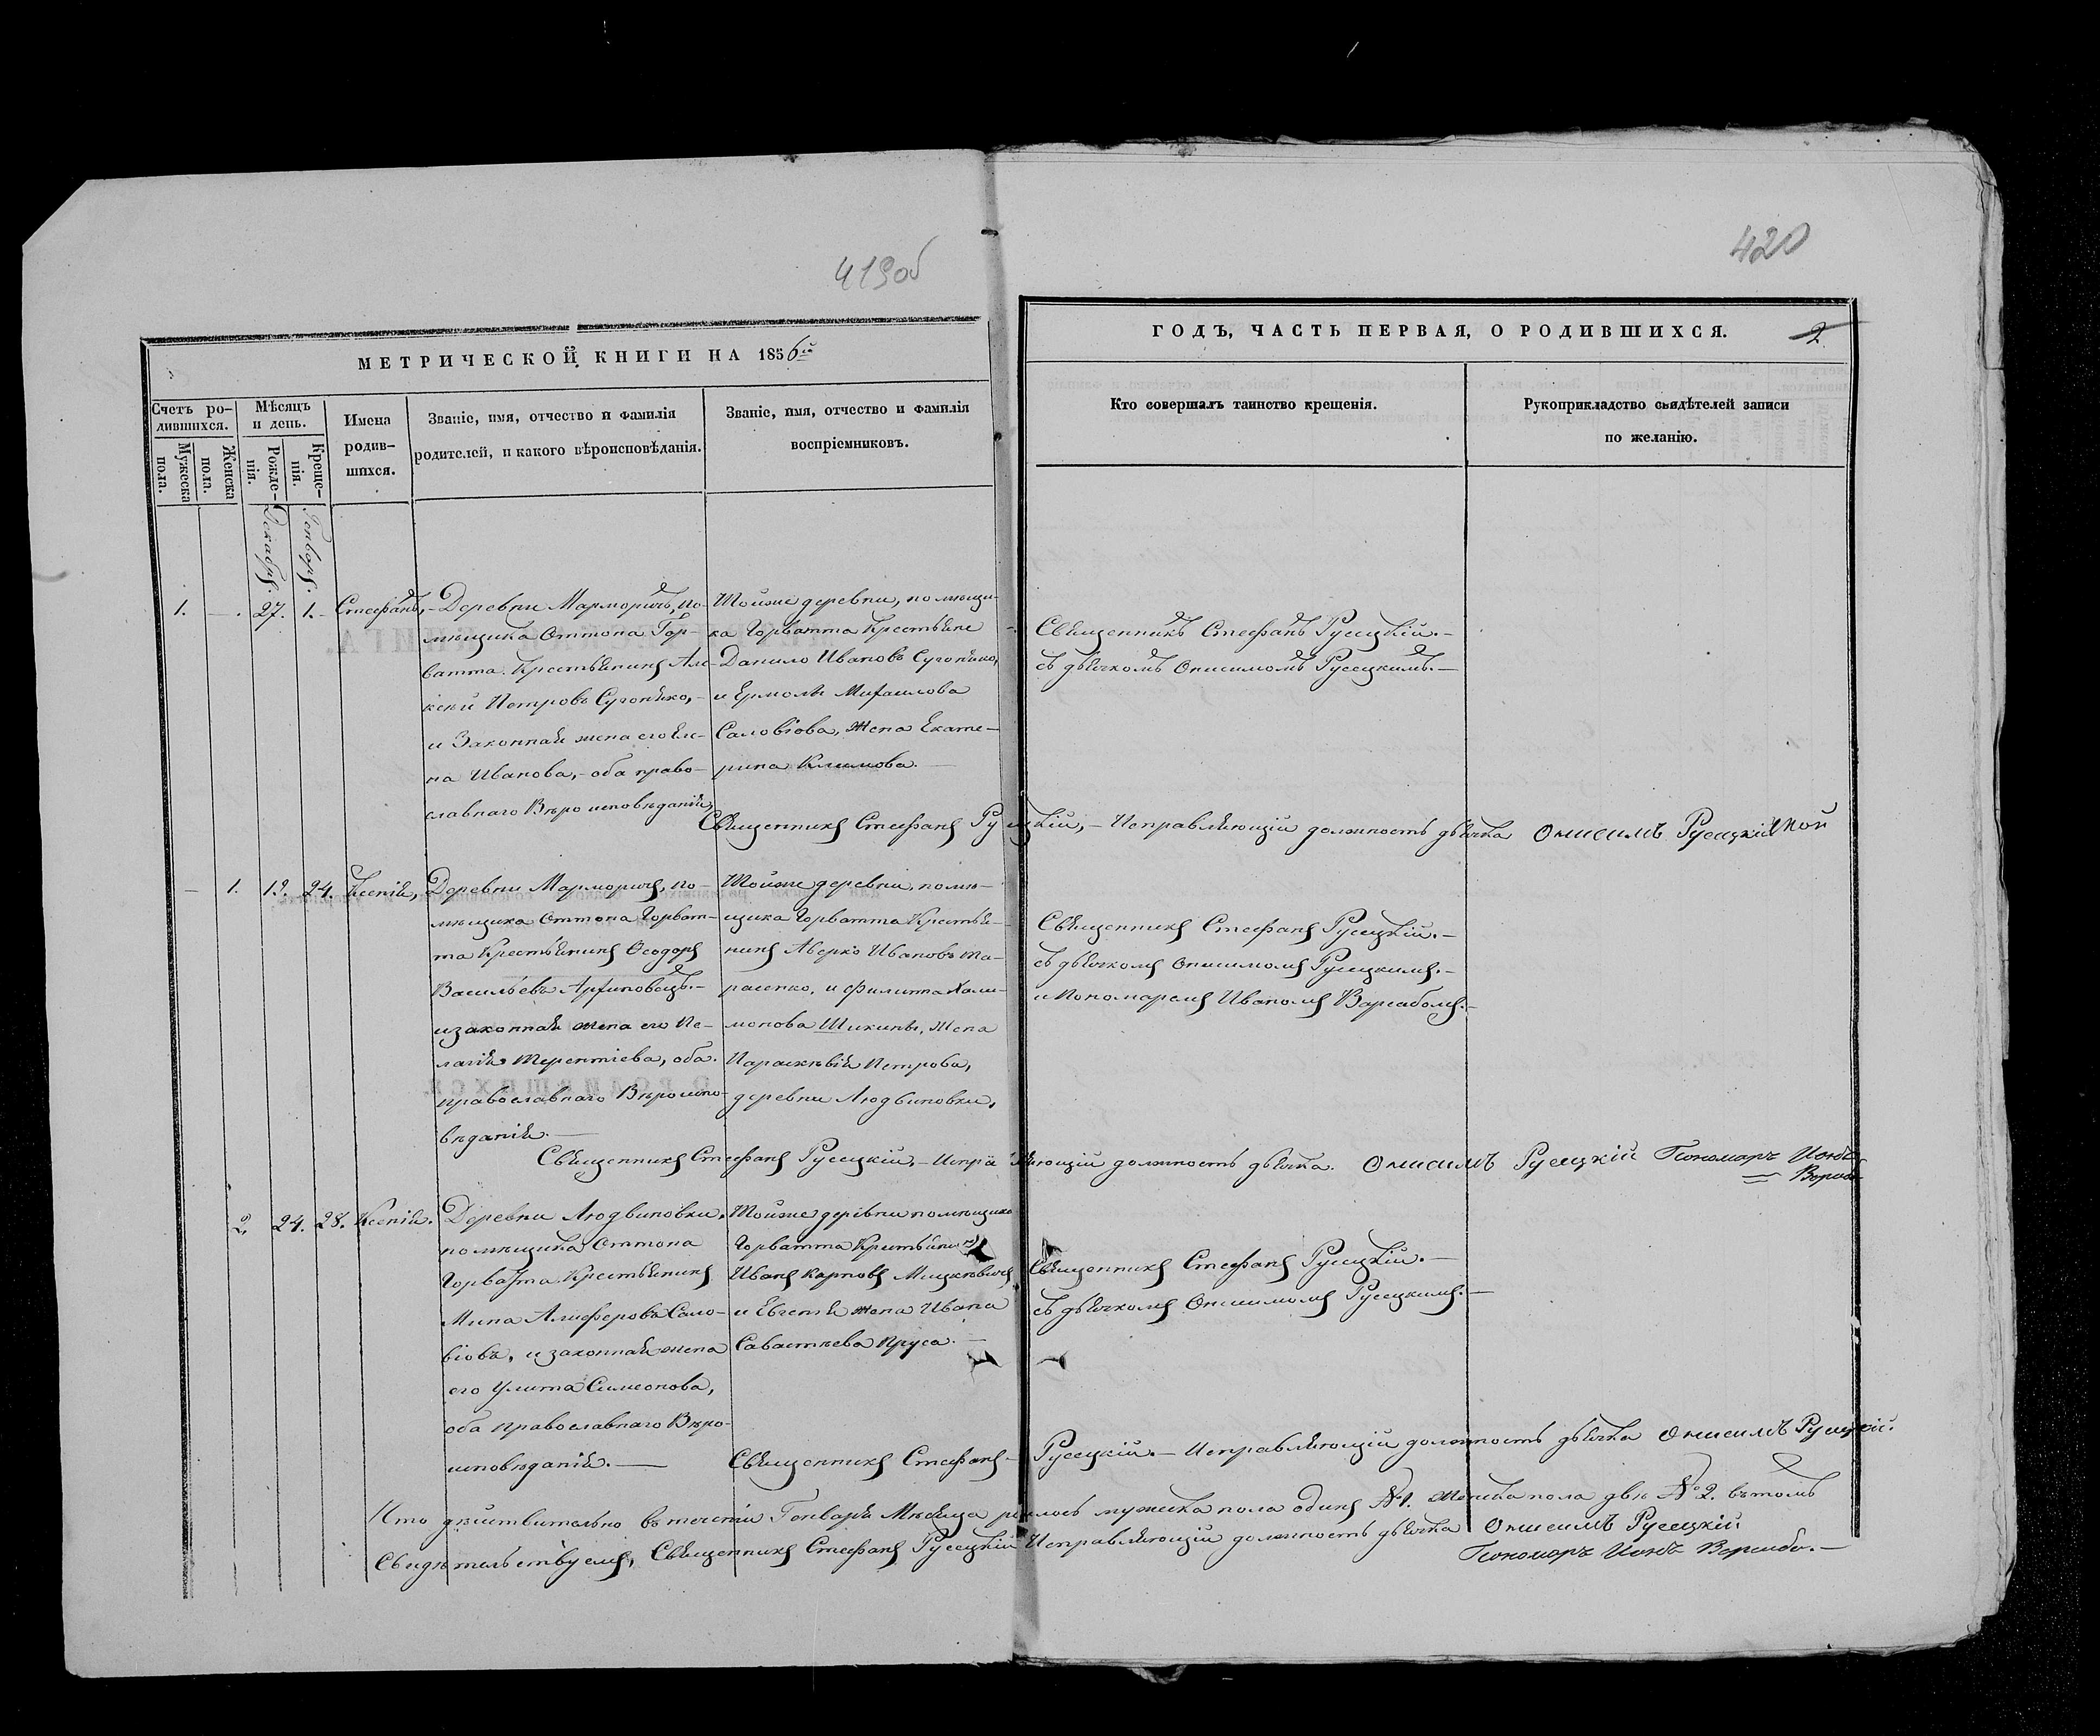 419об
420
МЕТРИЧЕСКОЙ КНИГИ НА 1856й
ГОДЪ, ЧАСТЬ ПЕРВАЯ, О РОДИВШИХСЯ.
2
Счетъ ро-
дившихся.
Мужеска
пола.
Женска
пола.
Мѣсяцъ
и день.
Рожде-
нія.
Креще-
нія.
Имена
родив-
шихся.
Званіе, имя, отчество и фамилія
родителей, и какого вѣроисповѣданія.
Званіе, имя, отчество и фамилія
воспріемниковъ.
Кто совершалъ таинство крещенія.
Рукоприкладство свидѣтелей записи
по желанію.
Декабрь.
Генварь.
1. — . 27. 1. Стефанъ,
Деревни Марморичъ, по-
мѣщика Оттона Гор-
ватта Крестьянинъ Але-
ксѣй Петровъ Сугонѣко,
и Законная жена его Еле-
на Иванова, оба право-
славнаго Вѣроисповѣданія,
Тойже деревни, помѣщи-
ка Горватта Крестьяне
Данило Ивановъ Сугонѣко,
и Ермолы Михаилова
Саловіова, жена Екате-
рина Климова. —
Священникъ Стефанъ Русецкій. —
съ дьячкомъ Онисимомъ Русецкимъ. —
Священникъ Стефанъ Русецкій, — Исправляющій должность дьячка Онисимъ Русецкій
— 1. 19. 24. Ксенія,
Деревни Марморичъ, по-
мѣщика Оттона Горват-
та Крестьянинъ Ѳеодоръ
Васильевъ Архиповецъ. —
и законная жена его Пе-
лагія Терентіева, оба
православнаго Вѣроиспо-
вѣданія. —
Тойже деревни, помѣ-
щика Горватта Крестья-
нинъ Аверко Ивановъ Та-
расенко, и Филиппа Хали-
монова Шикины, жена
Параскѣвія Петрова,
деревни Людвиновки.
Священникъ Стефанъ Русецкій. —
съ дьячкомъ Онисимомъ Русецкимъ. —
и Пономаремъ Иваномъ
Священникъ Стефанъ Русецкій, — Исправляющій должность дьячка. Онисимъ Русецкій Пономарь
2. 24. 28. Ксенія.
Деревни Людвиновки.
помѣщика Оттона
Горватта Крестьянинъ
Мина Алиферовъ Сало-
віовъ, и законная жена
его Улита Симеонова,
оба православнаго Вѣро-
исповѣданія. —
Тойже деревни помѣщика
Горватта Крестьянинъ
Иванъ Карповъ Мицкѣвичъ
и Евгенія жена Ивана
Савастѣева Пруса. —
Священникъ Стефанъ Русецкій. —
съ дьячкомъ Онисимомъ Русецкимъ. —
Священникъ Стефанъ — Русецкій. — Исправляющій должность дьячка Онисимъ Русецкій.
Что дѣйствительно въ теченіи Генваря Мѣсяца родилось мужеска пола одинъ № 1. женска пола двѣ № 2. въ томъ
Свидѣтельствуемъ, Священникъ Стефанъ Русецкій Исправляющій должность дьячка Онисимъ Русецкій
Пономарь